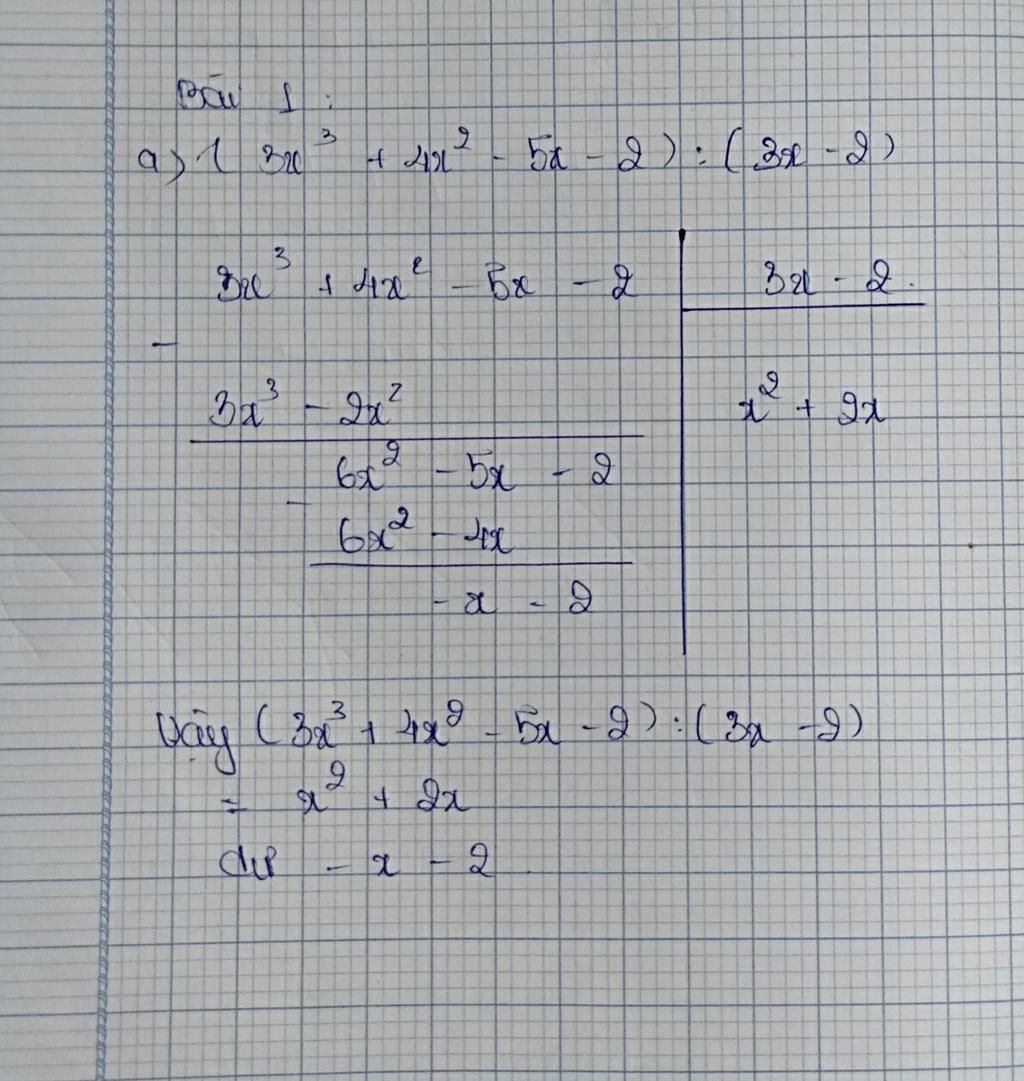 Bài 1 :
a) ( 3x³ + 4x² - 5x - 2 ) : ( 3x - 2 )
3x³ + 4x² - 5x - 2 | 3x - 2
-
3x³ - 2x² | x² + 2x
6x² - 5x - 2
-
6x² - 4x
- x - 2
Vậy ( 3x³ + 4x² - 5x - 2 ) : ( 3x - 2 )
= x² + 2x
dư - x - 2